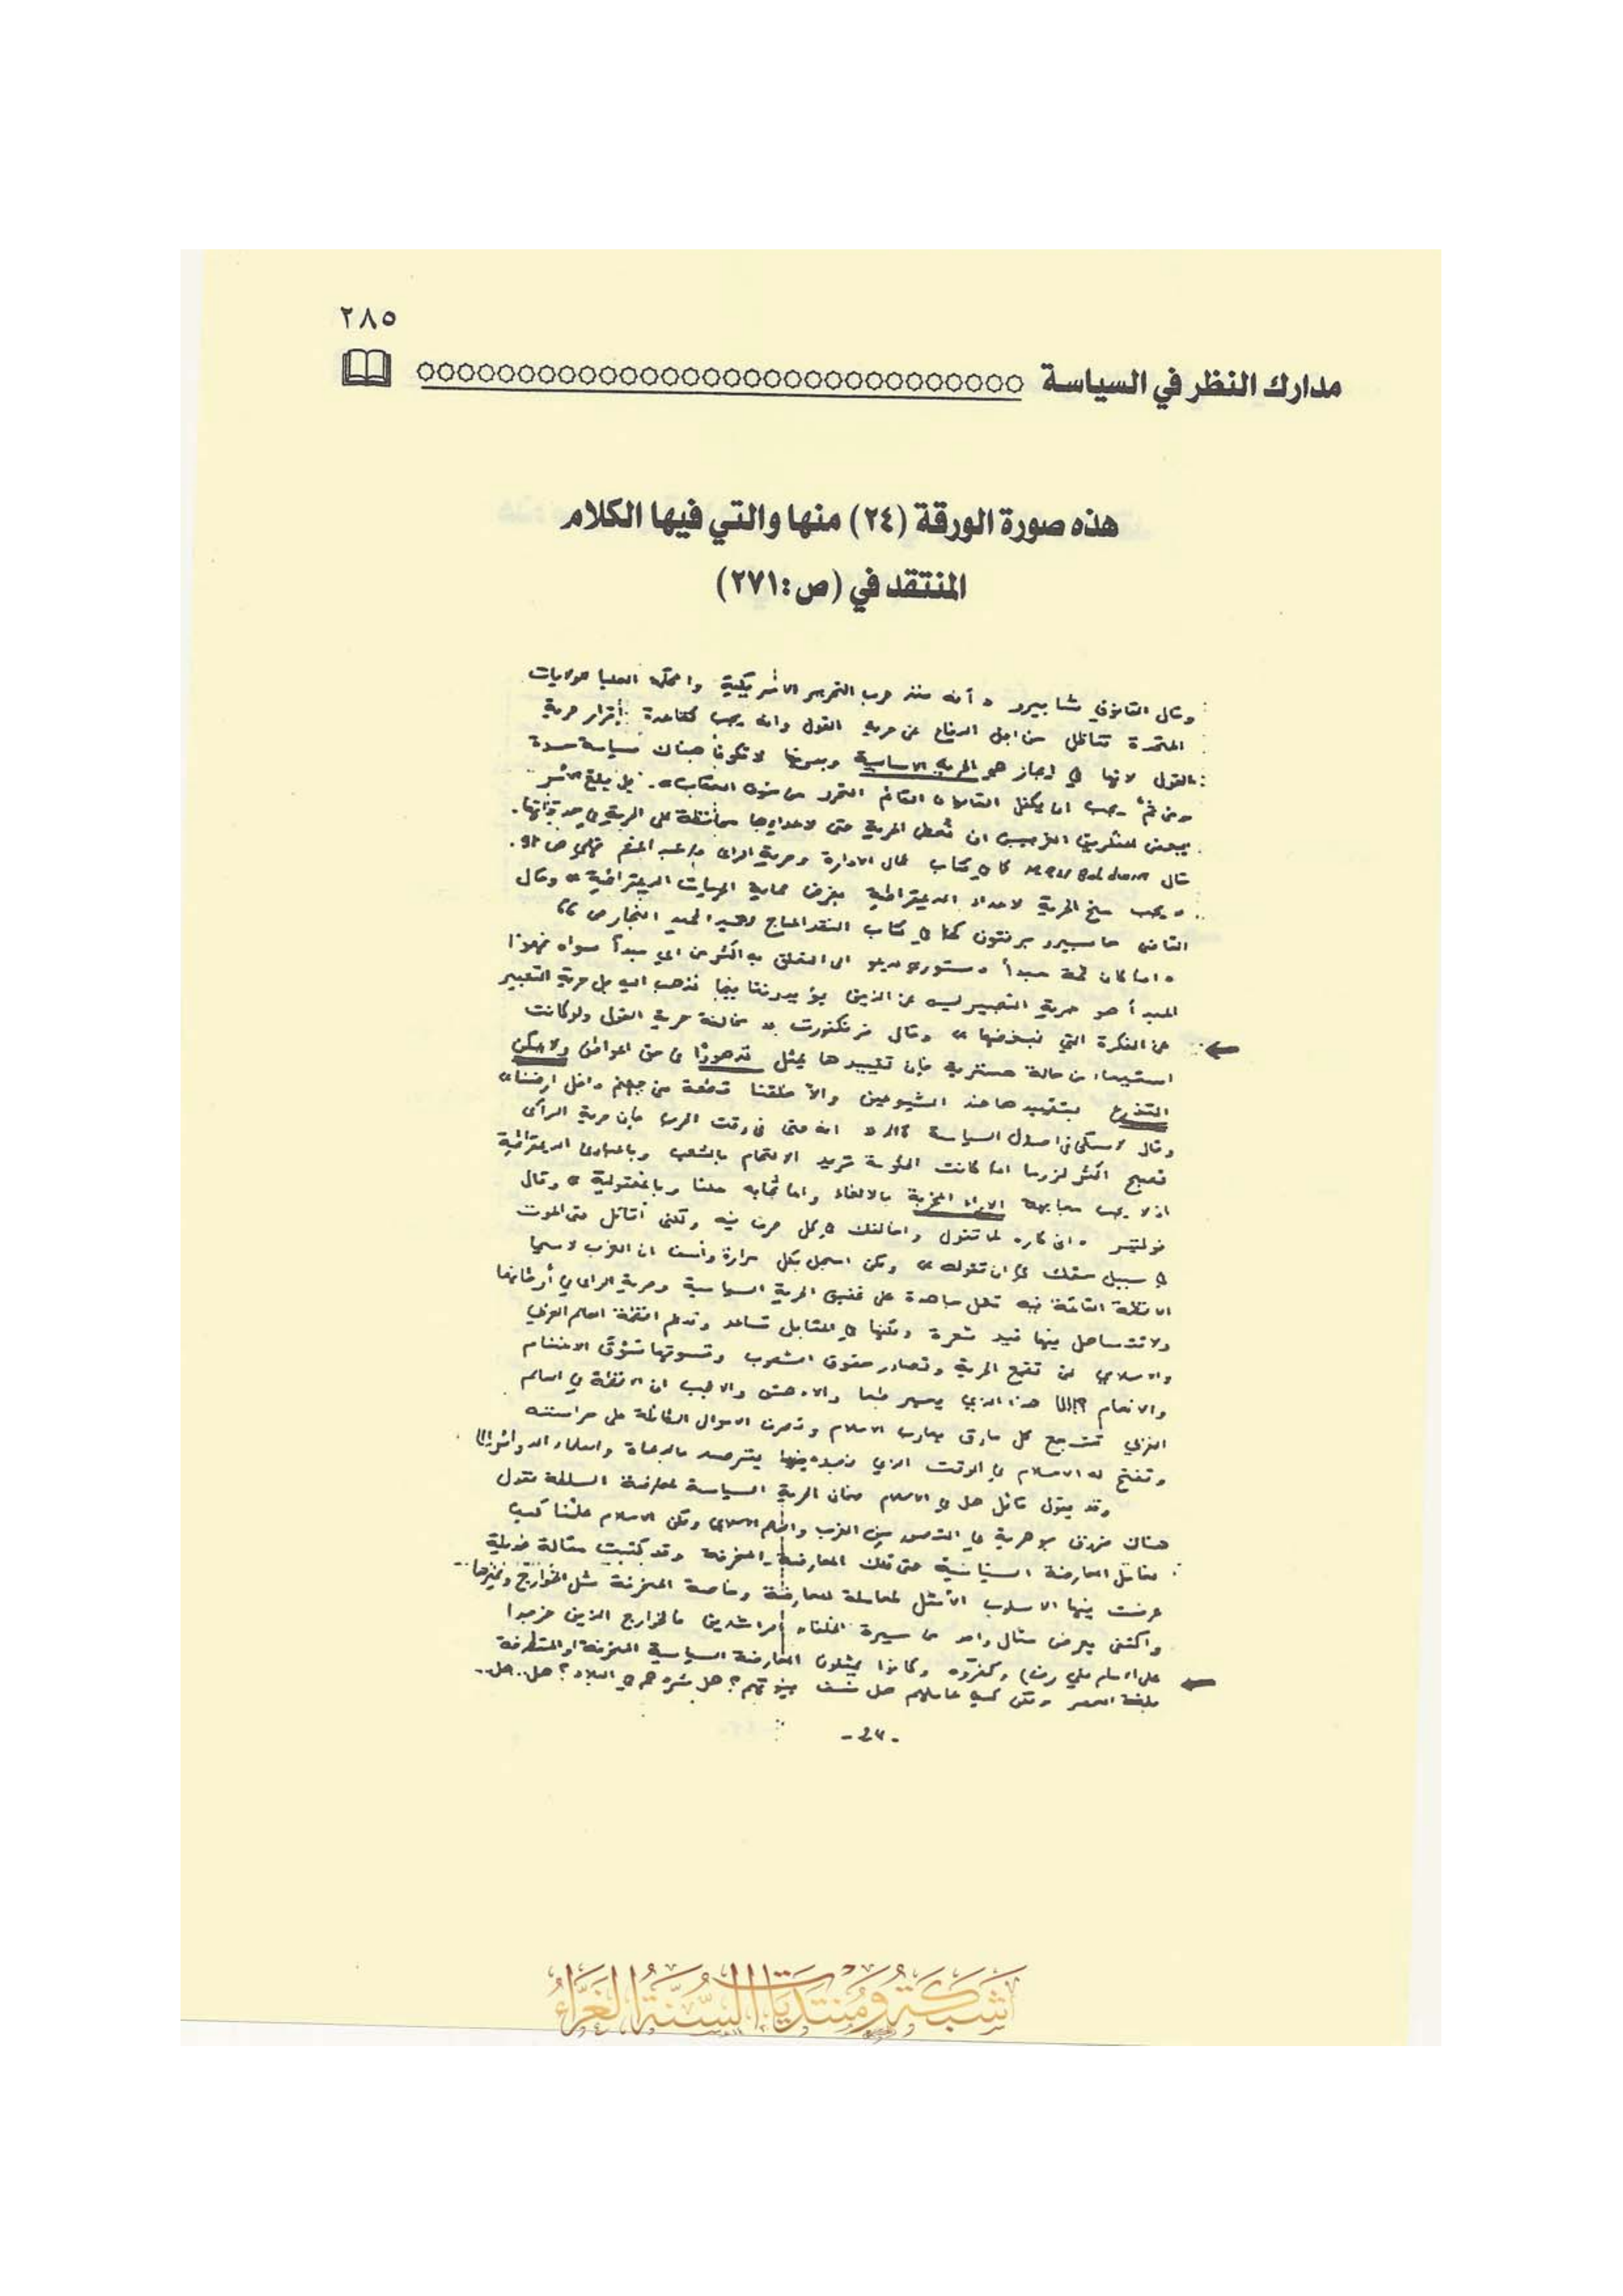 ٢٨٥
مدارك النظر في السياسة
هذه صورة الورقة (٢٤) منها والتي فيها الكلام
المنتقد في (ص:٢٧١)
وقال القانوني شابيرو « أنه منذ حرب التحرير الامريكية والمحكمة العليا للولايات
المتحدة تناضل من اجل الدفاع عن حرية القول وانه يجب كقاعدة إقرار حرية
القول لانها في ايجاز هو الحرية الاساسية وبدونها لا تكون هناك سياسة حرة
ومن ثم يجب ان يكفل القانون القائم التحرر من خوف العقاب». بل بلغ الأمر
ببعض المفكرين الغربيين ان تعطى الحرية حتى لاعدائها محافظة على الحرية في حد ذاتها.
قال كما في كتاب عمال الادارة وحرية الرأي د/عبد المنعم فهمي ص
« يجب منح الحرية لاعداء الديمقراطية بغرض حماية الحريات الديمقراطية » وقال
القاضي كما في كتاب النقد المباح لعبد الحميد النجار ص
« اما كان ثمة مبدأ دستوري يدعو الى التعلق به اكثر من اي مبدأ سواه فهذا
المبدأ هو حرية التعبير ليس عن الذين يؤيدوننا فيما نذهب اليه بل حرية التعبير
عن الفكرة التي نبغضها » وقال فرنكفورت « مخالفة حرية القول ولو كانت
من حالة هستيرية فإن تقييدها يمثل تدهورًا في حق المواطن ولا يمكن
التذرع بتقييدها ضد الشيوعيين والا خلقنا قطعة من جهنم داخل ارضنا»
وقال لاسكي في اصول السياسة « انه حتى في وقت الحرب فإن حرية الرأي
تصبح اكثر لزوما اذا كانت الحكومة تريد الالتحام بالشعب وبالمبادئ الديمقراطية
اذ لا يجب مجابهة الاراء المخربة بالالغاء وانما تجابه علنا وبالمعقولية » وقال
فولتير « اني كاره لما تقول واخالفك في كل حرف فيه ولكني أقاتل حتى الموت
في سبيل حقك في ان تقوله » ولكن اسجل بكل مرارة وأسف ان الغرب لاسيما
الانظمة القائمة فيه تعمل جاهدة على الحرية السياسية وحرية الرأي في أوطانها
ولا تتساهل فيها قيد شعرة ولكنها في المقابل تساعد وتدعم انظمة العالم العربي
والاسلامي لمن تقمع الحرية وتصادر حقوق الشعوب وتسوقها سَوْق الاغنام
والانعام ؟!!! هذا الذي يحير حقا والادهى والاعجب ان الانظمة في العالم
الغربي تشجع كل مارق يحارب الاسلام وتصرف الاموال الطائلة على حراسته
الاسلام في الوقت الذي
وقد يقول قائل هل في الاسلام ضمان الحرية السياسة لمعارضة السلطة نقول
هناك فروق جوهرية في التصور بين الغرب والاسلام ولكن الاسلام علمنا كيف
نقابل المعارضة السياسية حتى تلك المعارضة المنحرفة وقد كتبت مقالة طويلة
عرضت فيها الاسلوب الأمثل لمعاملة المعارضة وخاصة المنحرفة مثل الخوارج وغيرها
واكتفى بعرض مثال واحد من سيرة الخلفاء الراشدين فالخوارج الذين خرجوا
على الامام علي رضي وكفروه وكانوا يمثلون المعارضة السياسية المنحرفة او المتطرفة
بلغة العصر ولكن كيف عاملهم هل نسف بيوتهم؟ هل شردهم في البلاد؟ هل..هل..
-٢٤-
شبكة ومنتديات السنة الغراء